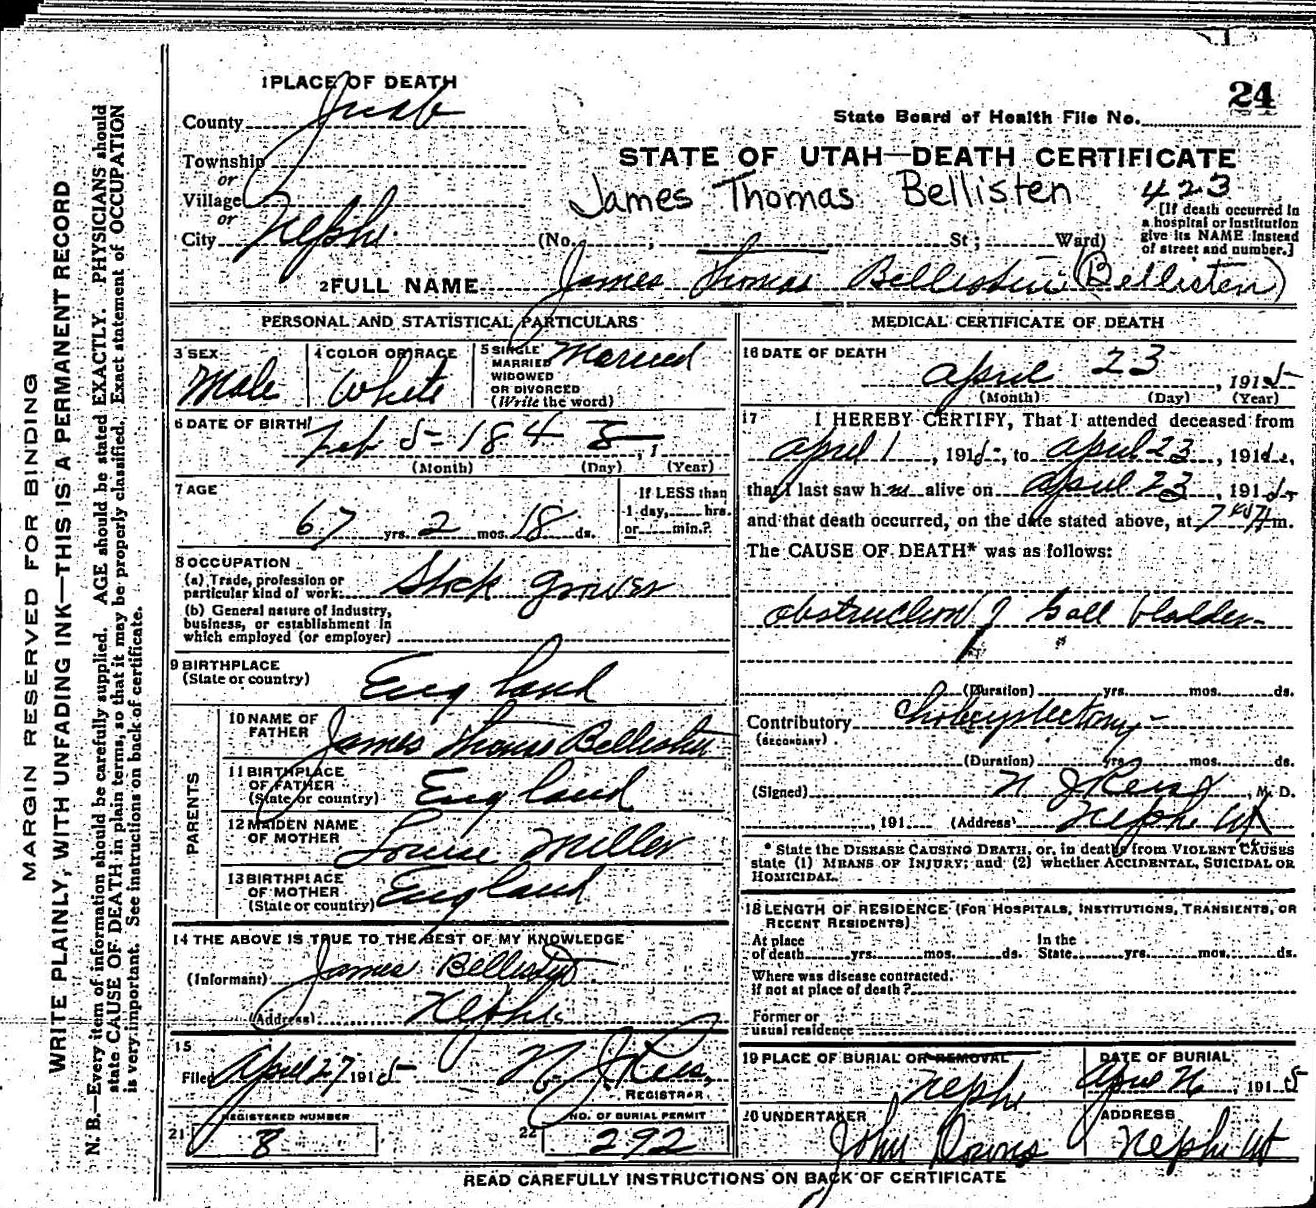 MARGIN RESERVED FOR BINDING
WRITE PLAINLY, WITH UNFADING INK—THIS IS A PERMANENT RECORD
N. B.—Every item of information should be carefully supplied. AGE should be stated EXACTLY. PHYSICIANS should
state CAUSE OF DEATH in plain terms, so that it may be properly classified. Exact statement of OCCUPATION
is very important. See instructions on back of certificate.
1 PLACE OF DEATH
County Juab
Township
or
Village
or
City Nephi
24
State Board of Health File No.
STATE OF UTAH—DEATH CERTIFICATE
James Thomas Bellisten 423
(No. , St ; Ward)
[If death occurred in
a hospital or institution
give its NAME instead
of street and number.]
2 FULL NAME James Thomas Bellistein (Bellisten)
PERSONAL AND STATISTICAL PARTICULARS
3 SEX
Male
4 COLOR OR RACE
White
5 SINGLE
MARRIED
WIDOWED
OR DIVORCED
(Write the word)
Married
6 DATE OF BIRTH
Feb 5- 184 , 1
(Month) (Day) (Year)
7 AGE
67 yrs. 2 mos. 18 ds.
If LESS than
1 day, hrs.
or min.?
8 OCCUPATION
(a) Trade, profession or
particular kind of work Stock grower
(b) General nature of industry,
business, or establishment in
which employed (or employer)
9 BIRTHPLACE
(State or country) England
PARENTS
10 NAME OF
FATHER James Thomas Bellisten
11 BIRTHPLACE
OF FATHER
(State or country) England
12 MAIDEN NAME
OF MOTHER Louise Miller
13 BIRTHPLACE
OF MOTHER
(State or country) England
14 THE ABOVE IS TRUE TO THE BEST OF MY KNOWLEDGE
(Informant) James Bellisten
(Address) Nephi
15
Filed April 27 1915 N. J. Rees,
REGISTRAR
REGISTERED NUMBER
21 8
NO. OF BURIAL PERMIT
22 292
MEDICAL CERTIFICATE OF DEATH
16 DATE OF DEATH
April 23, 1915
(Month) (Day) (Year)
17 I HEREBY CERTIFY, That I attended deceased from
April 1, 1915, to April 23, 1915,
that I last saw him alive on April 23, 1915
and that death occurred, on the date stated above, at 7 m.
The CAUSE OF DEATH* was as follows:
obstruction of Gall bladder
(Duration) yrs. mos. ds.
Contributory Cholecystectomy
(SECONDARY)
(Duration) yrs. mos. ds.
(Signed) N J Rees, M. D.
, 191 (Address) Nephi Ut
* State the DISEASE CAUSING DEATH, or, in deaths from VIOLENT CAUSES
state (1) MEANS OF INJURY; and (2) whether ACCIDENTAL, SUICIDAL OR
HOMICIDAL.
18 LENGTH OF RESIDENCE (FOR HOSPITALS, INSTITUTIONS, TRANSIENTS, OR
RECENT RESIDENTS)
At place
of death yrs. mos. ds. In the
State yrs. mos. ds.
Where was disease contracted.
If not at place of death?
Former or
usual residence
19 PLACE OF BURIAL OR REMOVAL
Nephi
DATE OF BURIAL
April 26, 1915
20 UNDERTAKER
John Downs
ADDRESS
Nephi Ut
READ CAREFULLY INSTRUCTIONS ON BACK OF CERTIFICATE